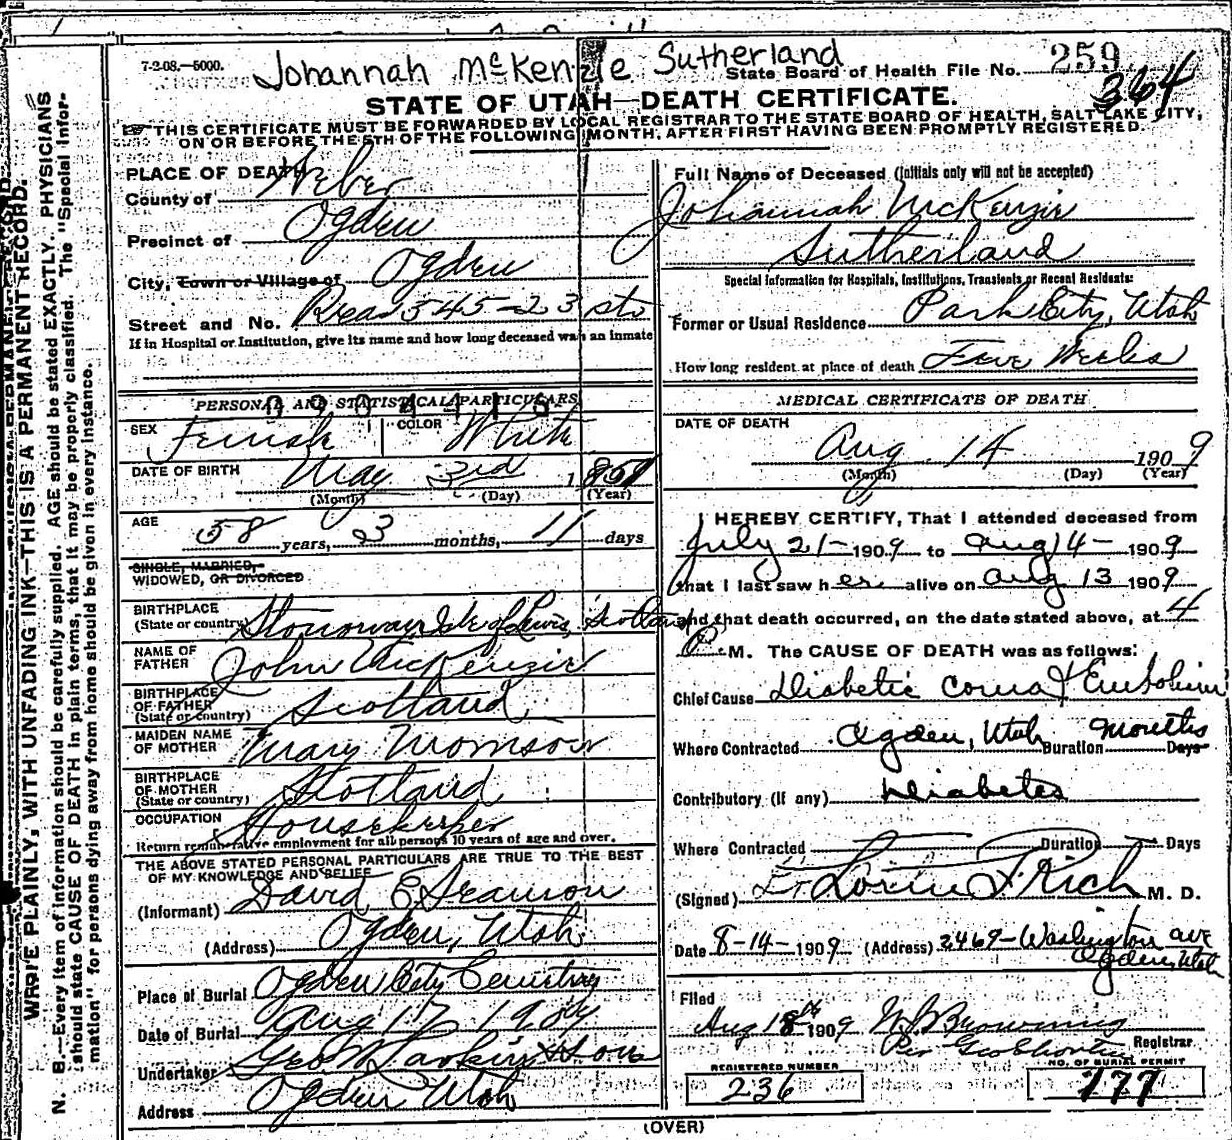 7-2-08.—5000.
Johannah McKenzie Sutherland
State Board of Health File No. 259
364
STATE OF UTAH—DEATH CERTIFICATE.
THIS CERTIFICATE MUST BE FORWARDED BY LOCAL REGISTRAR TO THE STATE BOARD OF HEALTH, SALT LAKE CITY,
ON OR BEFORE THE 5TH OF THE FOLLOWING MONTH, AFTER FIRST HAVING BEEN PROMPTLY REGISTERED.
WRITE PLAINLY, WITH UNFADING INK—THIS IS A PERMANENT RECORD.
N. B.—Every item of information should be carefully supplied. AGE should be stated EXACTLY. PHYSICIANS
should state CAUSE OF DEATH in plain terms, that it may be properly classified. The "Special Infor-
mation" for persons dying away from home should be given in every instance.
PLACE OF DEATH
County of Weber
Precinct of Ogden
City, Town or Village of Ogden
Street and No. Rear 545-23 st
If in Hospital or Institution, give its name and how long deceased was an inmate
PERSONAL AND STATISTICAL PARTICULARS
SEX Female COLOR White
DATE OF BIRTH May 3rd 1851
(Month) (Day) (Year)
AGE
58 years, 3 months, 11 days
SINGLE, MARRIED,
WIDOWED, OR DIVORCED
BIRTHPLACE
(State or country) Stornoway, Isle of Lewis, Scotland
NAME OF
FATHER John McKenzie
BIRTHPLACE
OF FATHER
(State or country) Scotland
MAIDEN NAME
OF MOTHER Mary Morrison
BIRTHPLACE
OF MOTHER
(State or country) Scotland
OCCUPATION Housekeeper
Return remunerative employment for all persons 10 years of age and over.
THE ABOVE STATED PERSONAL PARTICULARS ARE TRUE TO THE BEST
OF MY KNOWLEDGE AND BELIEF
(Informant) David E.
(Address) Ogden, Utah
Place of Burial Ogden City Cemetery
Date of Burial Aug 17 1909
Undertaker Geo W Larkin & Sons
Address Ogden Utah
Full Name of Deceased (Initials only will not be accepted)
Johannah McKenzie
Sutherland
Special Information for Hospitals, Institutions, Transients or Recent Residents:
Former or Usual Residence Park City, Utah
How long resident at place of death Five Weeks
MEDICAL CERTIFICATE OF DEATH
DATE OF DEATH
Aug 14 1909
(Month) (Day) (Year)
I HEREBY CERTIFY, That I attended deceased from
July 21- 1909 to Aug 14- 1909
that I last saw her alive on Aug 13 1909
and that death occurred, on the date stated above, at 4
P. M. The CAUSE OF DEATH was as follows:
Chief Cause Diabetic Coma & Embolism
Where Contracted Ogden, Utah Duration months Days
Contributory (if any) Diabetes
Where Contracted Duration Days
(Signed) Rich M. D.
Date 8-14-1909 (Address) 2469-Washington ave
Ogden, Utah
Filed
Aug 18th 1909 Browning
Per Registrar
REGISTERED NUMBER
236
NO. OF BURIAL PERMIT
777
(OVER)